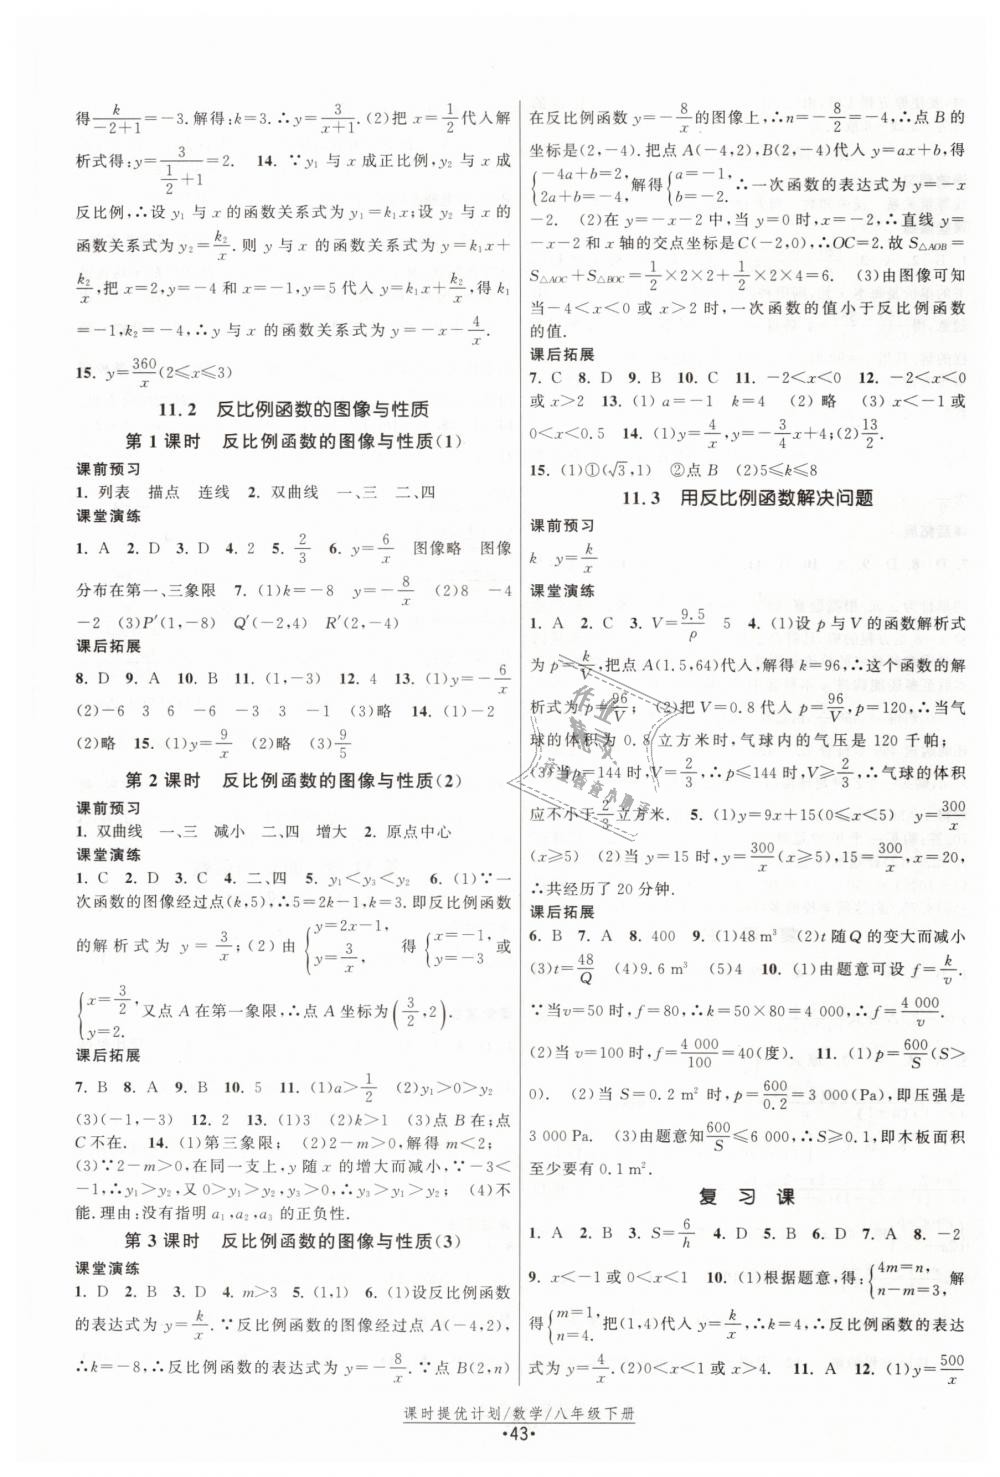 得k/(-2+1)=-3.解得:k=3.∴y=3/(x+1).(2)把x=1/2代入解
析式得:y=3/(1/2+1)=2. 14. ∵y₁与x成正比例,y₂与x成
反比例,∴设y₁与x的函数关系式为y₁=k₁x;设y₂与x的
函数关系式为y₂=k₂/x.则y与x的函数关系式为y=k₁x+
k₂/x,把x=2,y=-4和x=-1,y=5代入y=k₁x+k₂/x,得k₁
=-1,k₂=-4,∴y与x的函数关系式为y=-x-4/x.
15. y=360/x(2≤x≤3)
11.2 反比例函数的图像与性质
第1课时 反比例函数的图像与性质(1)
课前预习
1. 列表 描点 连线 2. 双曲线 一、三 二、四
课堂演练
1. A 2. D 3. D 4. 2 5. 2/3 6. y=6/x 图像略 图像
分布在第一、三象限 7. (1)k=-8 y=-8/x (2)8 -4
-2 (3)P′(1,-8) Q′(-2,4) R′(2,-4)
课后拓展
8. D 9. A 10. B 11. (1,-3) 12. 4 13. (1)y=-6/x
(2)-6 3 6 -6 -3 3 -1 (3)略 14. (1)-2
(2)略 15. (1)y=9/x (2)略 (3)9/5
第2课时 反比例函数的图像与性质(2)
课前预习
1. 双曲线 一、三 减小 二、四 增大 2. 原点中心
课堂演练
1. C 2. D 3. C 4. 二、四 5. y₁<y₃<y₂ 6. (1)∵一
次函数的图像经过点(k,5),∴5=2k-1,k=3.即反比例函数
的解析式为y=3/x;(2)由{y=2x-1, y=3/x, 得{x=-1, y=-3 或
{x=3/2, y=2. 又点A在第一象限,∴点A坐标为(3/2,2).
课后拓展
7. B 8. A 9. B 10. 5 11. (1)a>1/2 (2)y₁>0>y₂
(3)(-1,-3) 12. 2 13. (1)3 (2)k>1 (3)点B在;点
C不在. 14. (1)第三象限;(2)2-m>0,解得m<2;
(3)∵2-m>0,在同一支上,y随x的增大而减小,∵-3<
-1,∴y₁>y₂,又0>y₁>y₂,y₃>0,∴y₃>y₁>y₂;(4)不
能.理由:没有指明a₁,a₂,a₃的正负性.
第3课时 反比例函数的图像与性质(3)
课堂演练
1. D 2. B 3. D 4. m>3 5. (1,1) 6. (1)设反比例函数
的表达式为y=k/x.∵反比例函数的图像经过点A(-4,2),
∴k=-8,∴反比例函数的表达式为y=-8/x.∵点B(2,n)
在反比例函数y=-8/x的图像上,∴n=-8/2=-4,∴点B的
坐标是(2,-4).把点A(-4,2),B(2,-4)代入y=ax+b,得
{-4a+b=2, 2a+b=-4, 解得{a=-1, b=-2. ∴一次函数的表达式为y=-x
-2. (2)在y=-x-2中,当y=0时,x=-2,∴直线y=
-x-2和x轴的交点坐标是C(-2,0),∴OC=2.故S△AOB=
S△AOC+S△BOC=1/2×2×2+1/2×2×4=6. (3)由图像可知
当-4<x<0或x>2时,一次函数的值小于反比例函数
的值.
课后拓展
7. C 8. D 9. B 10. C 11. -2<x<0 12. -2<x<0
或x>2 13. (1)a=-1 k=4 (2)略 (3)x<-1或
0<x<0.5 14. (1)y=4/x,y=-3/4x+4;(2)13/2.
15. (1)①(√3,1) ②点B (2)5≤k≤8
11.3 用反比例函数解决问题
课前预习
k y=k/x
课堂演练
1. A 2. C 3. V=9.5/ρ 5 4. (1)设p与V的函数解析式
为p=k/V,把点A(1.5,64)代入,解得k=96,∴这个函数的解
析式为p=96/V; (2)把V=0.8代入p=96/V,p=120,∴当气
球的体积为0.8立方米时,气球内的气压是120千帕;
(3)当p=144时,V=2/3,∴p≤144时,V≥2/3,∴气球的体积
应不小于2/3立方米. 5. (1)y=9x+15(0≤x<5) y=300/x
(x≥5) (2)当y=15时,y=300/x(x≥5),15=300/x,x=20,
∴共经历了20分钟.
课后拓展
6. B 7. A 8. 400 9. (1)48 m³ (2)t随Q的变大而减小
(3)t=48/Q (4)9.6 m³ (5)4 10. (1)由题意可设f=k/v.
∵当v=50时,f=80,∴k=50×80=4 000,∴f=4 000/v.
(2)当v=100时,f=4 000/100=40(度). 11. (1)p=600/S(S>
0). (2)当S=0.2 m²时,p=600/0.2=3 000(Pa),即压强是
3 000 Pa. (3)由题意知600/S≤6 000,∴S≥0.1,即木板面积
至少要有0.1 m².
复习课
1. A 2. B 3. S=6/h 4. D 5. B 6. D 7. A 8. -2
9. x<-1或0<x<1 10. (1)根据题意,得:{4m=n, n-m=3, 解
得{m=1, n=4. 把(1,4)代入y=k/x,∴k=4,∴反比例函数的表达
式为y=4/x.(2)0<x<1或x>4. 11. A 12. (1)y=500/x
课时提优计划/数学/八年级下册
·43·